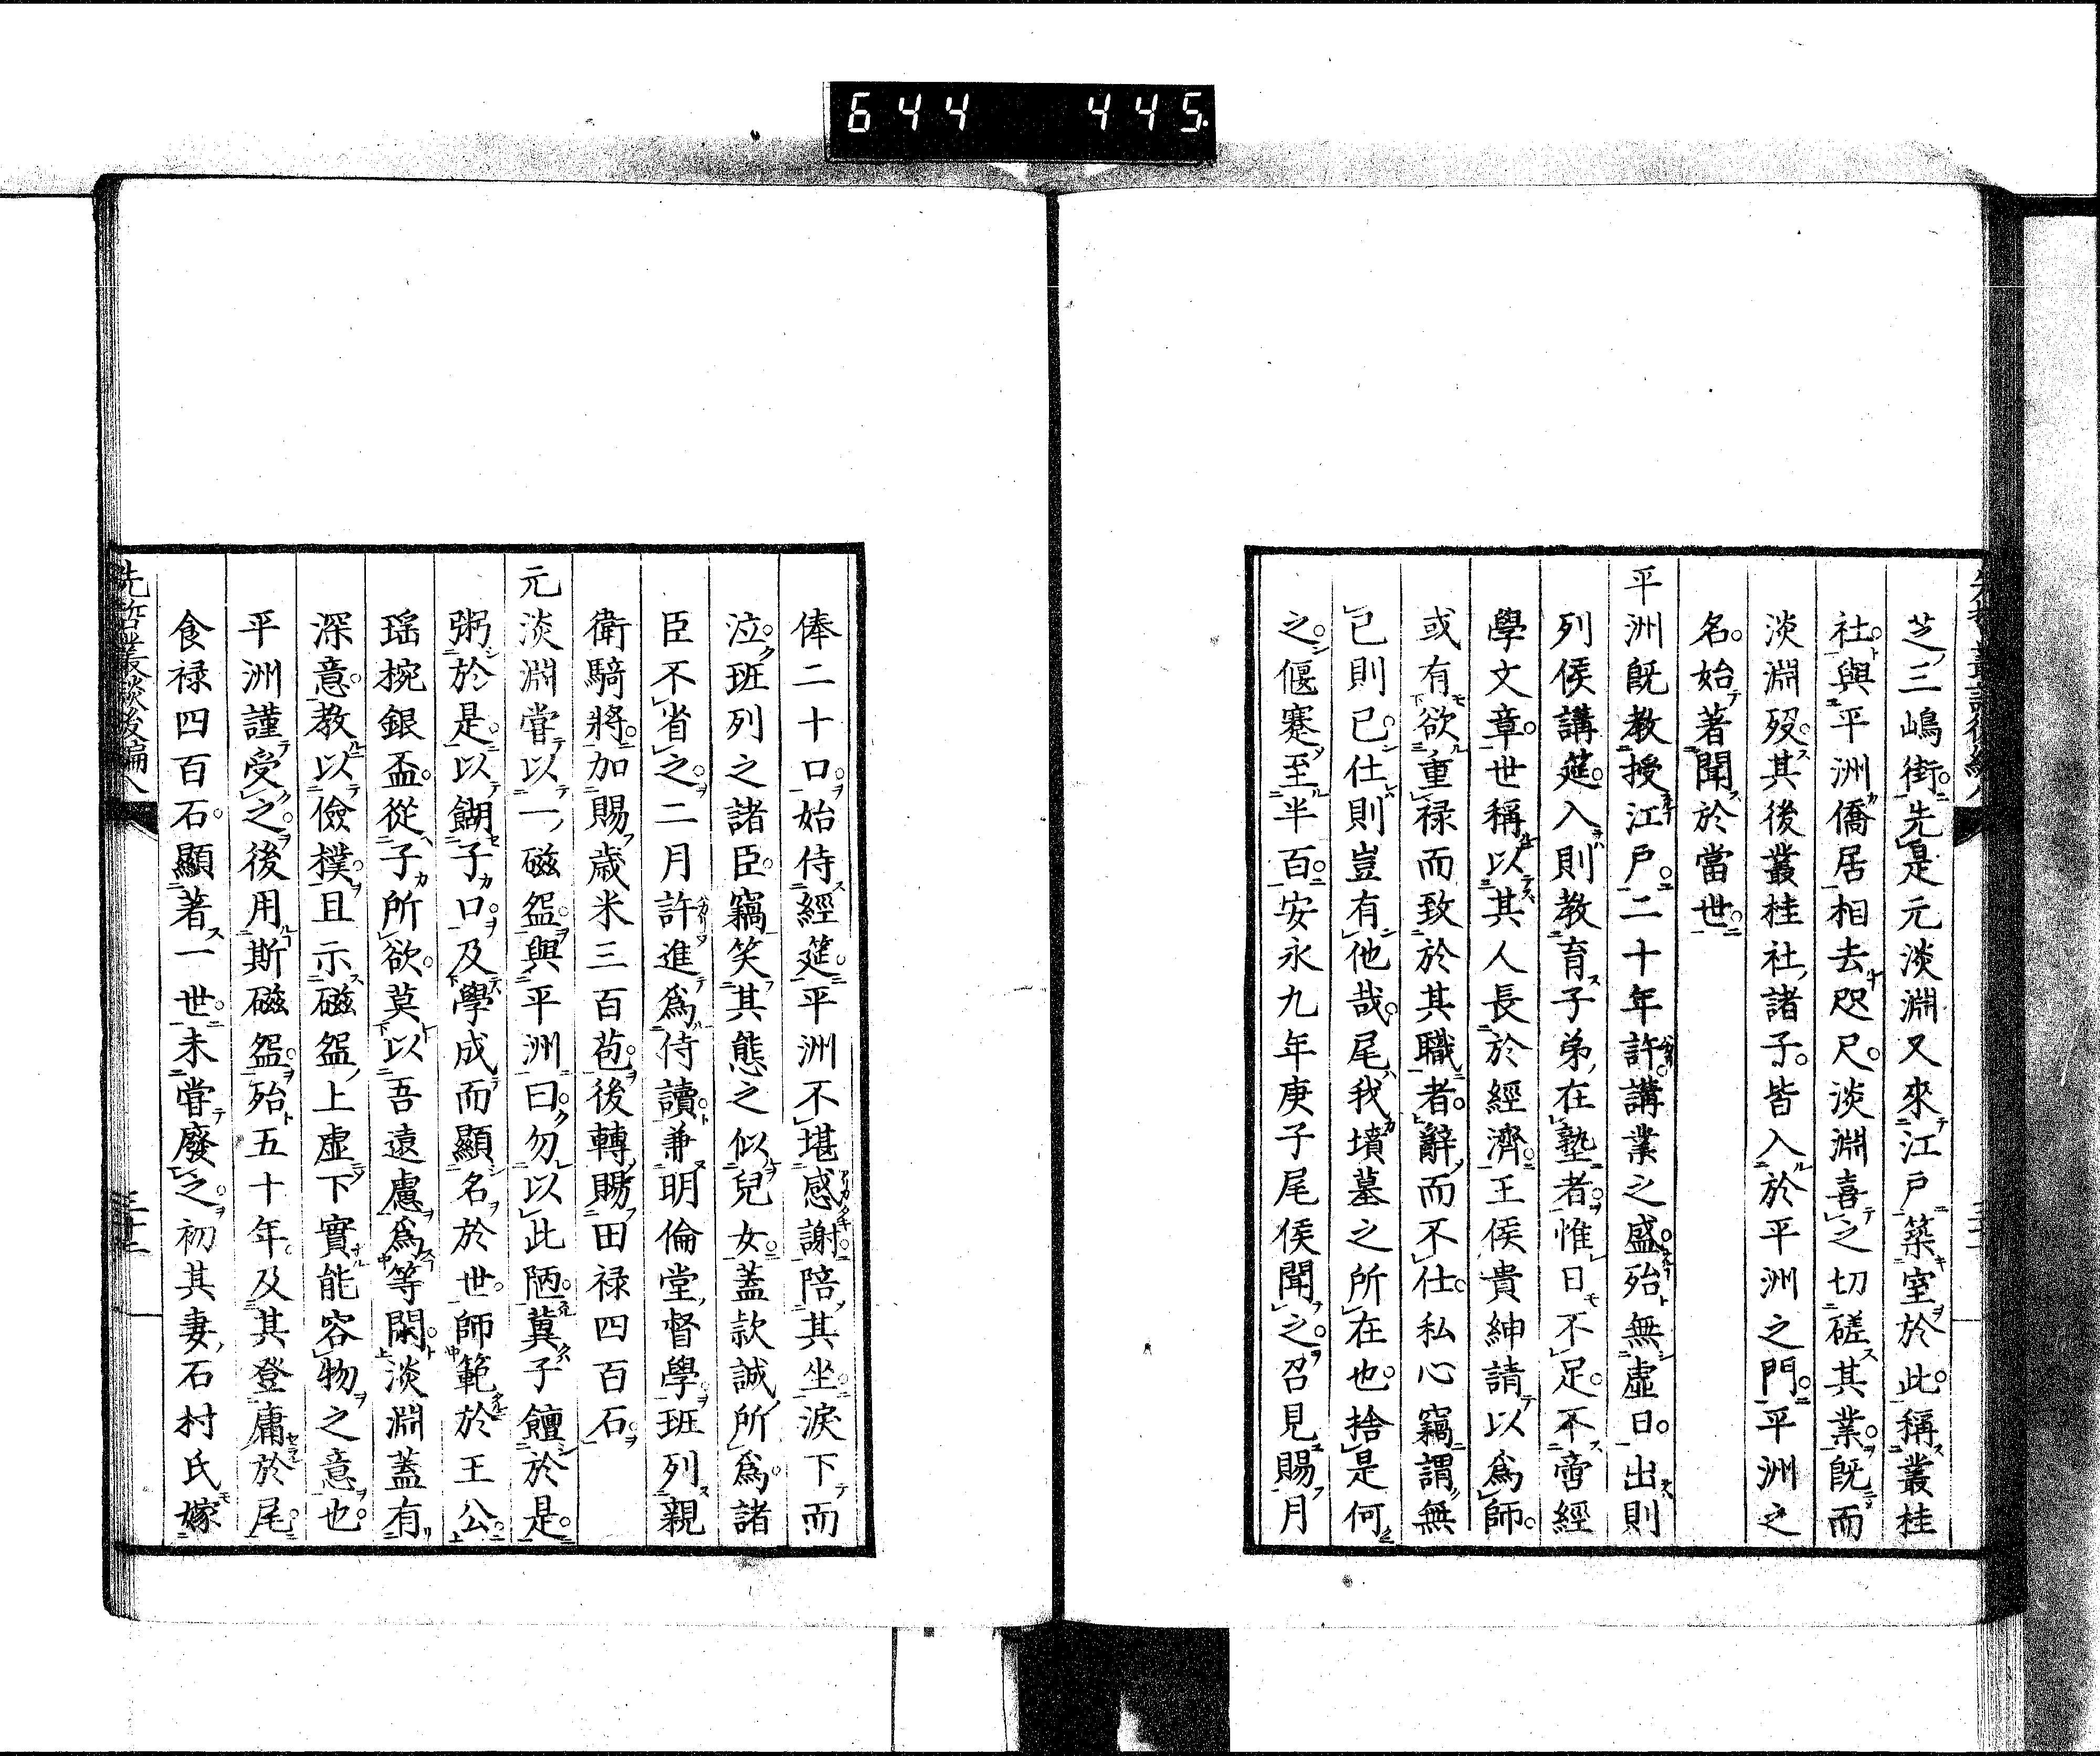 644 445
芝三嶋街先是元淡淵又來江戸築室於此稱叢桂
社與平洲僑居相去咫尺淡淵喜之切磋其業既而
淡淵歿其後叢桂社諸子皆入於平洲之門平洲之
名始著聞於當世
平洲既教授江戸二十年許講業之盛殆無虚日出則
列侯講筵入則教育子弟在塾者惟日不足不啻經
學文章世稱以其人長於經濟王侯貴紳請以爲師
或有欲重禄而致於其職者辭而不仕私心竊謂無
已則已仕則豈有他哉尾我墳墓之所在也捨是何
之偃蹇至半百安永九年庚子尾侯聞之召見賜月
俸二十口始侍經筵平洲不堪感謝陪其坐涙下而
泣班列之諸臣竊笑其態之似兒女蓋款誠所爲諸
臣不省之二月許進爲侍讀兼明倫堂督學班列親
衛騎將加賜歳米三百苞後轉賜田禄四百石
元淡淵嘗以一磁盌與平洲曰勿以此陋冀子饘於是
粥於是以餬子口及學成而顯名於世師範於王公
瑤椀銀盃從子所欲莫以吾遠慮爲等閑淡淵蓋有
深意教以儉樸且示磁盌上虚下實能容物之意也
平洲謹受之後用斯磁盌殆五十年及其登庸於尾
食禄四百石顯著一世未嘗廢之初其妻石村氏嫁
先哲叢談後編八